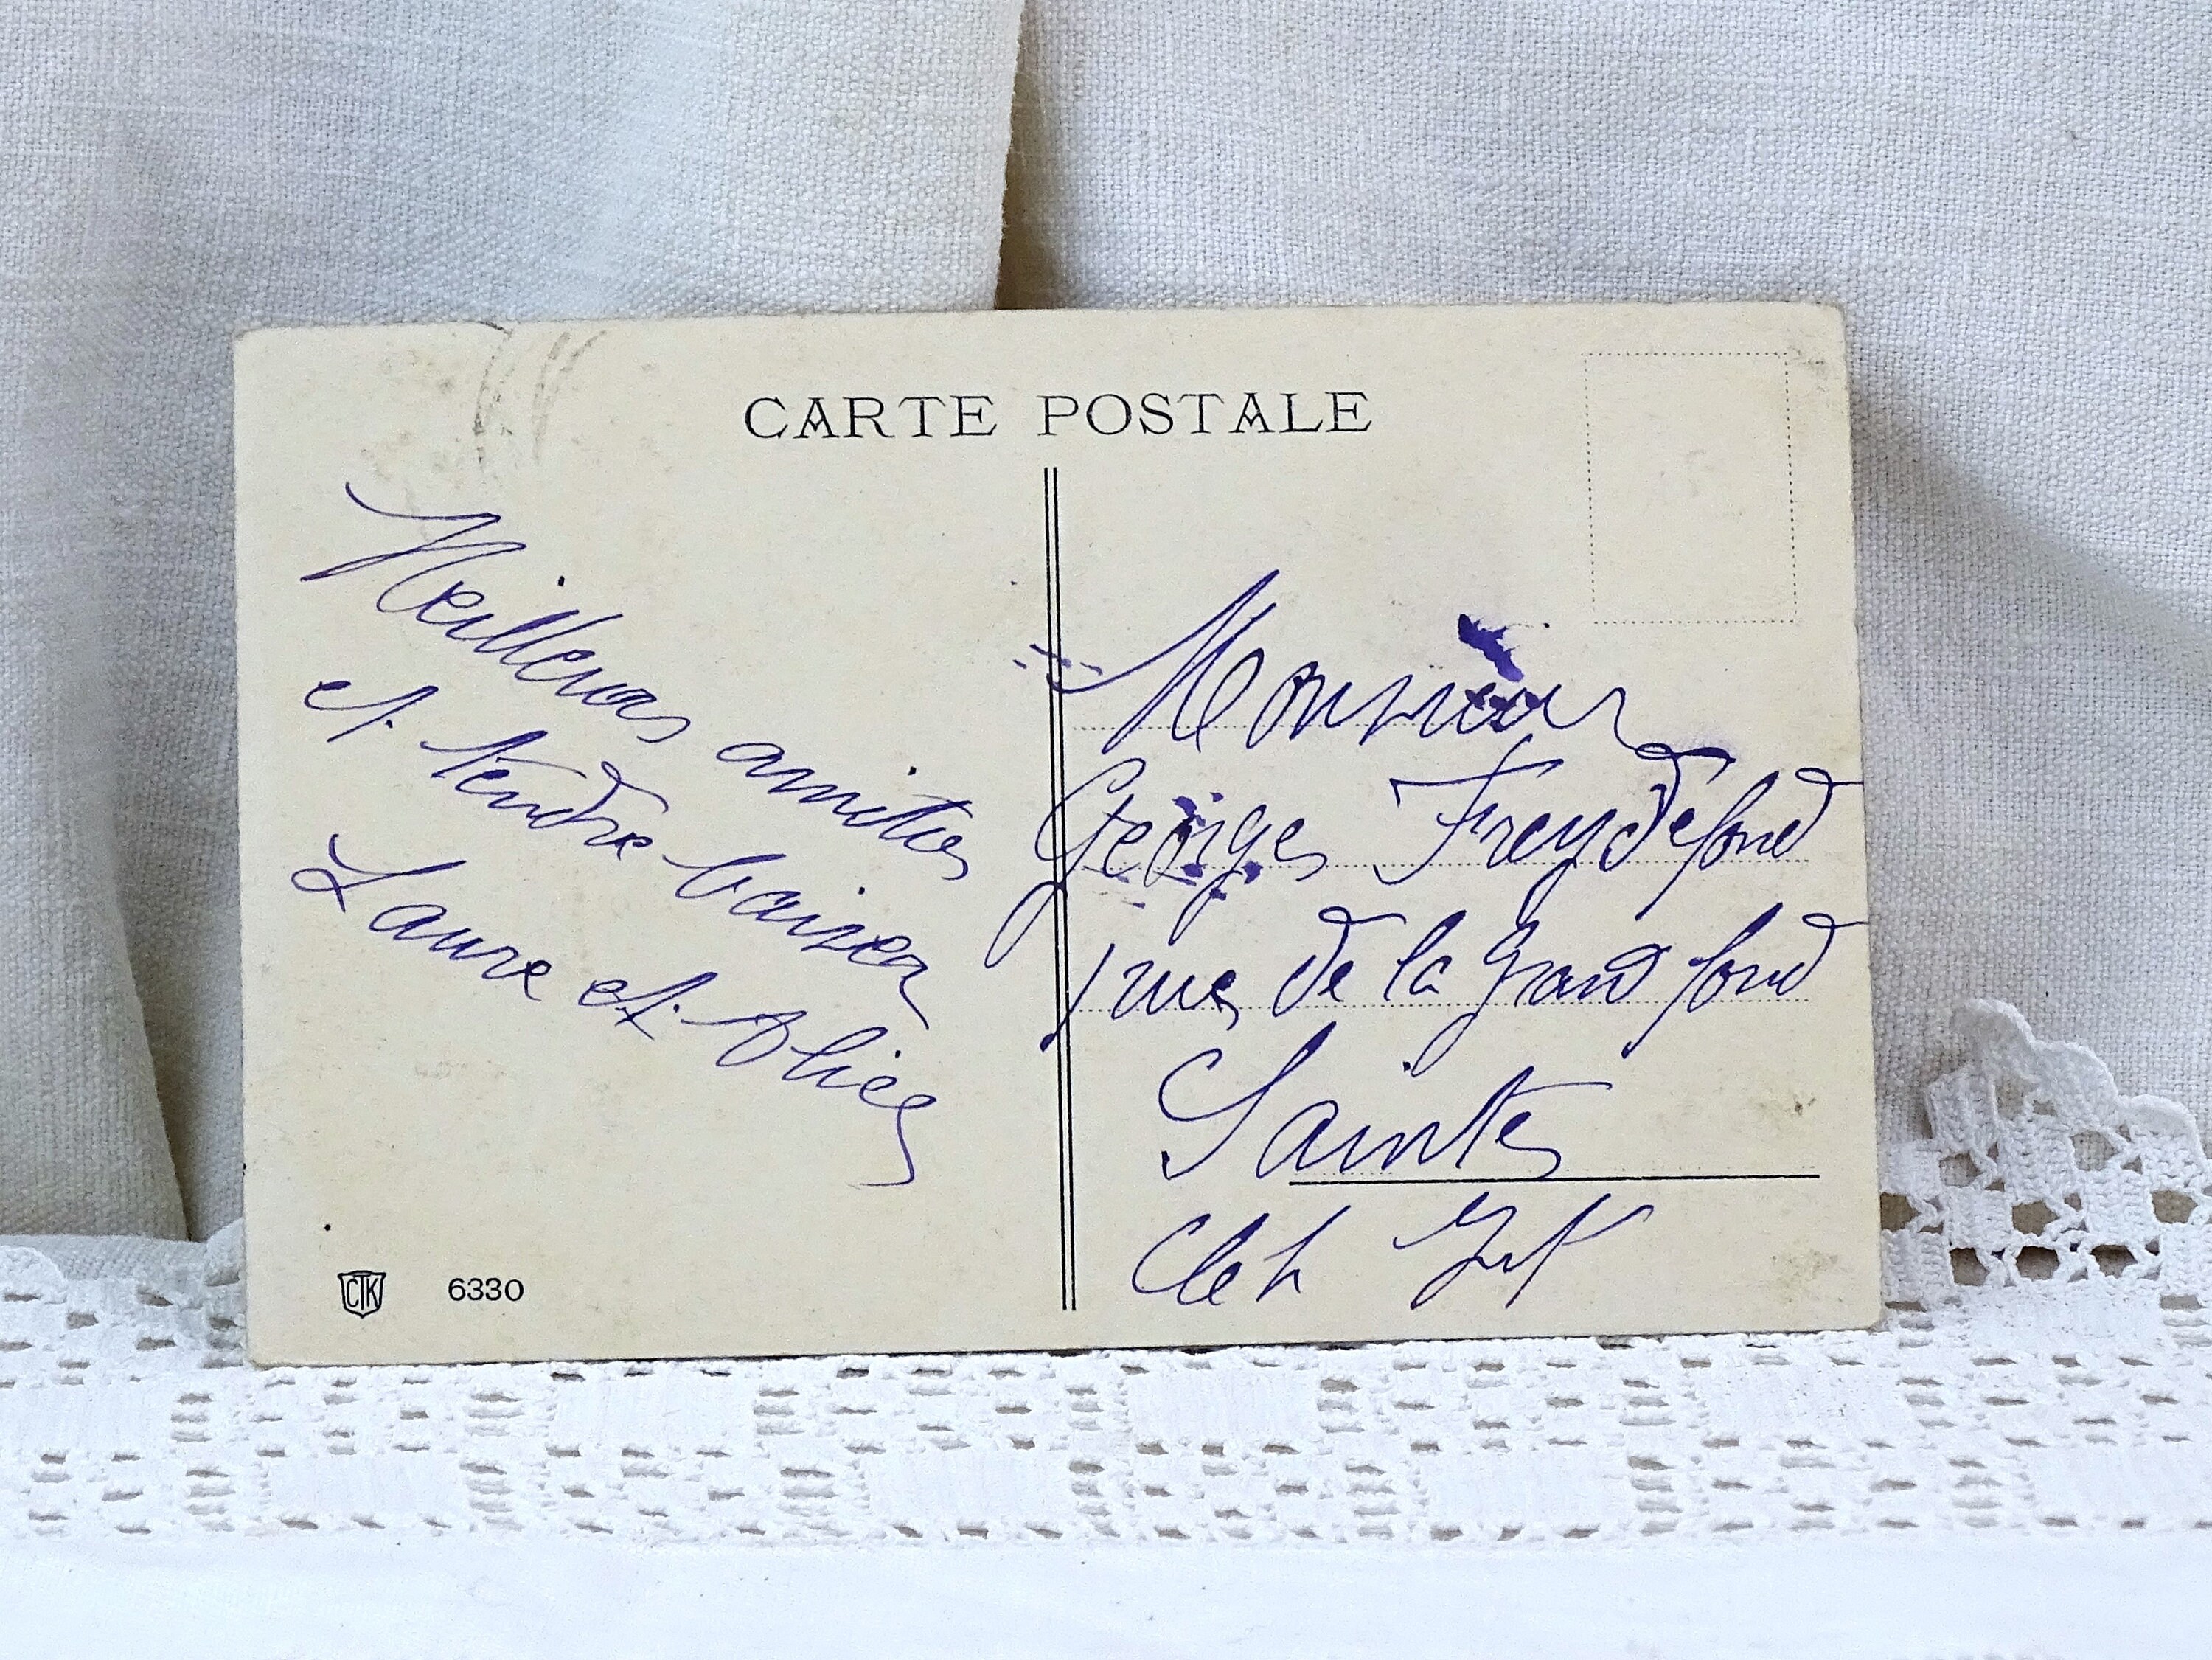 CARTE POSTALE
Meilleures amitiés
et tendre baiser
Laure et
Monsieur
Georges Freydefond
rue de la grand fond
Saintes
CTK 6330